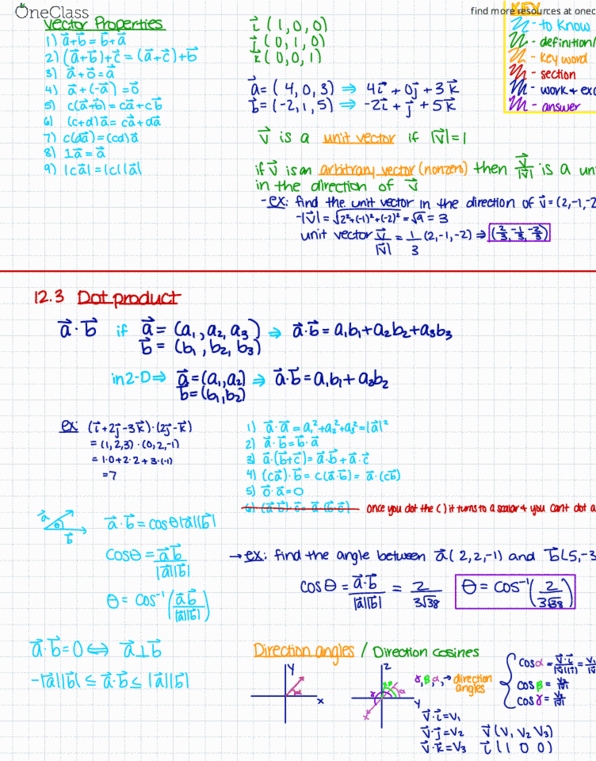 OneClass
find more resources at onec
Vector Properties
1) a⃗+b⃗ = b⃗+a⃗
2) (a⃗+b⃗)+c⃗ = (a⃗+c⃗)+b⃗
3) a⃗+0⃗=a⃗
4) a⃗+(-a⃗)=0⃗
5) c(a⃗+b⃗)=ca⃗+cb⃗
6) (c+d)a⃗=ca⃗+da⃗
7) c(da⃗)=(cd)a⃗
8) 1a⃗=a⃗
9) |ca⃗|=|c||a⃗|
i⃗ (1,0,0)
j⃗ (0,1,0)
k⃗ (0,0,1)
a⃗=(4,0,3) ⇒ 4i⃗+0j⃗+3k⃗
b⃗=(-2,1,5) ⇒ -2i⃗+j⃗+5k⃗
v⃗ is a unit vector if |v⃗|=1
if v⃗ is an arbitrary vector (nonzero) then v⃗/|v⃗| is a un
in the direction of v⃗
-ex: find the unit vector in the direction of v⃗=(2,-1,-2
-|v⃗|=√2²+(-1)²+(-2)²=√9=3
unit vector v⃗/|v⃗| = 1/3 (2,-1,-2) ⇒ (2/3,-1/3,-2/3)
KEY
- to know
- definition/
- key word
- section
- work + exa
- answer
12.3 Dot product
a⃗·b⃗ if a⃗=(a₁,a₂,a₃) ⇒ a⃗·b⃗=a₁b₁+a₂b₂+a₃b₃
b⃗=(b₁,b₂,b₃)
in 2-D ⇒ a⃗=(a₁,a₂) ⇒ a⃗·b⃗=a₁b₁+a₂b₂
b⃗=(b₁,b₂)
ex: (i⃗+2j⃗-3k⃗)·(2j⃗-k⃗)
=(1,2,3)·(0,2,-1)
=1·0+2·2+3·(-1)
=7
1) a⃗·a⃗=a₁²+a₂²+a₃²=|a⃗|²
2) a⃗·b⃗=b⃗·a⃗
3) a⃗·(b⃗+c⃗)=a⃗·b⃗+a⃗·c⃗
4) (ca⃗)·b⃗=c(a⃗·b⃗)=a⃗·(cb⃗)
5) 0⃗·a⃗=0
6) (a⃗·b⃗)·c⃗=a⃗·(b⃗·c⃗) once you dot the () it turns to a scalar + you cant dot a
a⃗ θ b⃗
a⃗·b⃗=cosθ|a⃗||b⃗|
cosθ=a⃗b⃗/|a⃗||b⃗|
θ=cos⁻¹(a⃗b⃗/|a⃗||b⃗|)
→ex: find the angle between a⃗(2,2,-1) and b⃗(5,-3
cosθ=a⃗·b⃗/|a⃗||b⃗| = 2/3√38 θ=cos⁻¹(2/3√38)
a⃗·b⃗=0 ⇔ a⃗⊥b⃗
-|a⃗||b⃗| ≤ a⃗·b⃗ ≤ |a⃗||b⃗|
Direction angles / Direction cosines
y x
z y x
γ,β,α,→ direction
angles
cosα=v⃗·i⃗/|v⃗||i⃗|=v₁/
cosβ=v₂/|v⃗|
cosγ=v₃/|v⃗|
v⃗·i⃗=v₁
v⃗·j⃗=v₂ v⃗(v₁ v₂ v₃)
v⃗·k⃗=v₃ i⃗(1 0 0)